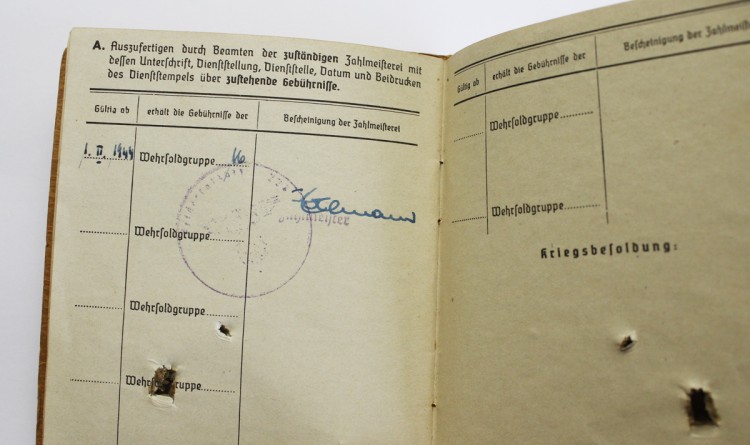 A. Auszufertigen durch Beamten der zuständigen Zahlmeisterei mit
dessen Unterschrift, Dienststellung, Dienststelle, Datum und Beidrucken
des Dienststempels über zustehende Gebührnisse.
Gültig ab
erhält die Gebührnisse der
Bescheinigung der Zahlmeisterei
1. II. 1944 Wehrsoldgruppe 16
Zahlmeister
Wehrsoldgruppe
Wehrsoldgruppe
Wehrsoldgruppe
Gültig ab
erhält die Gebührnisse der
Bescheinigung der Zahlmeisterei
Wehrsoldgruppe
Wehrsoldgruppe
Kriegsbesoldung: